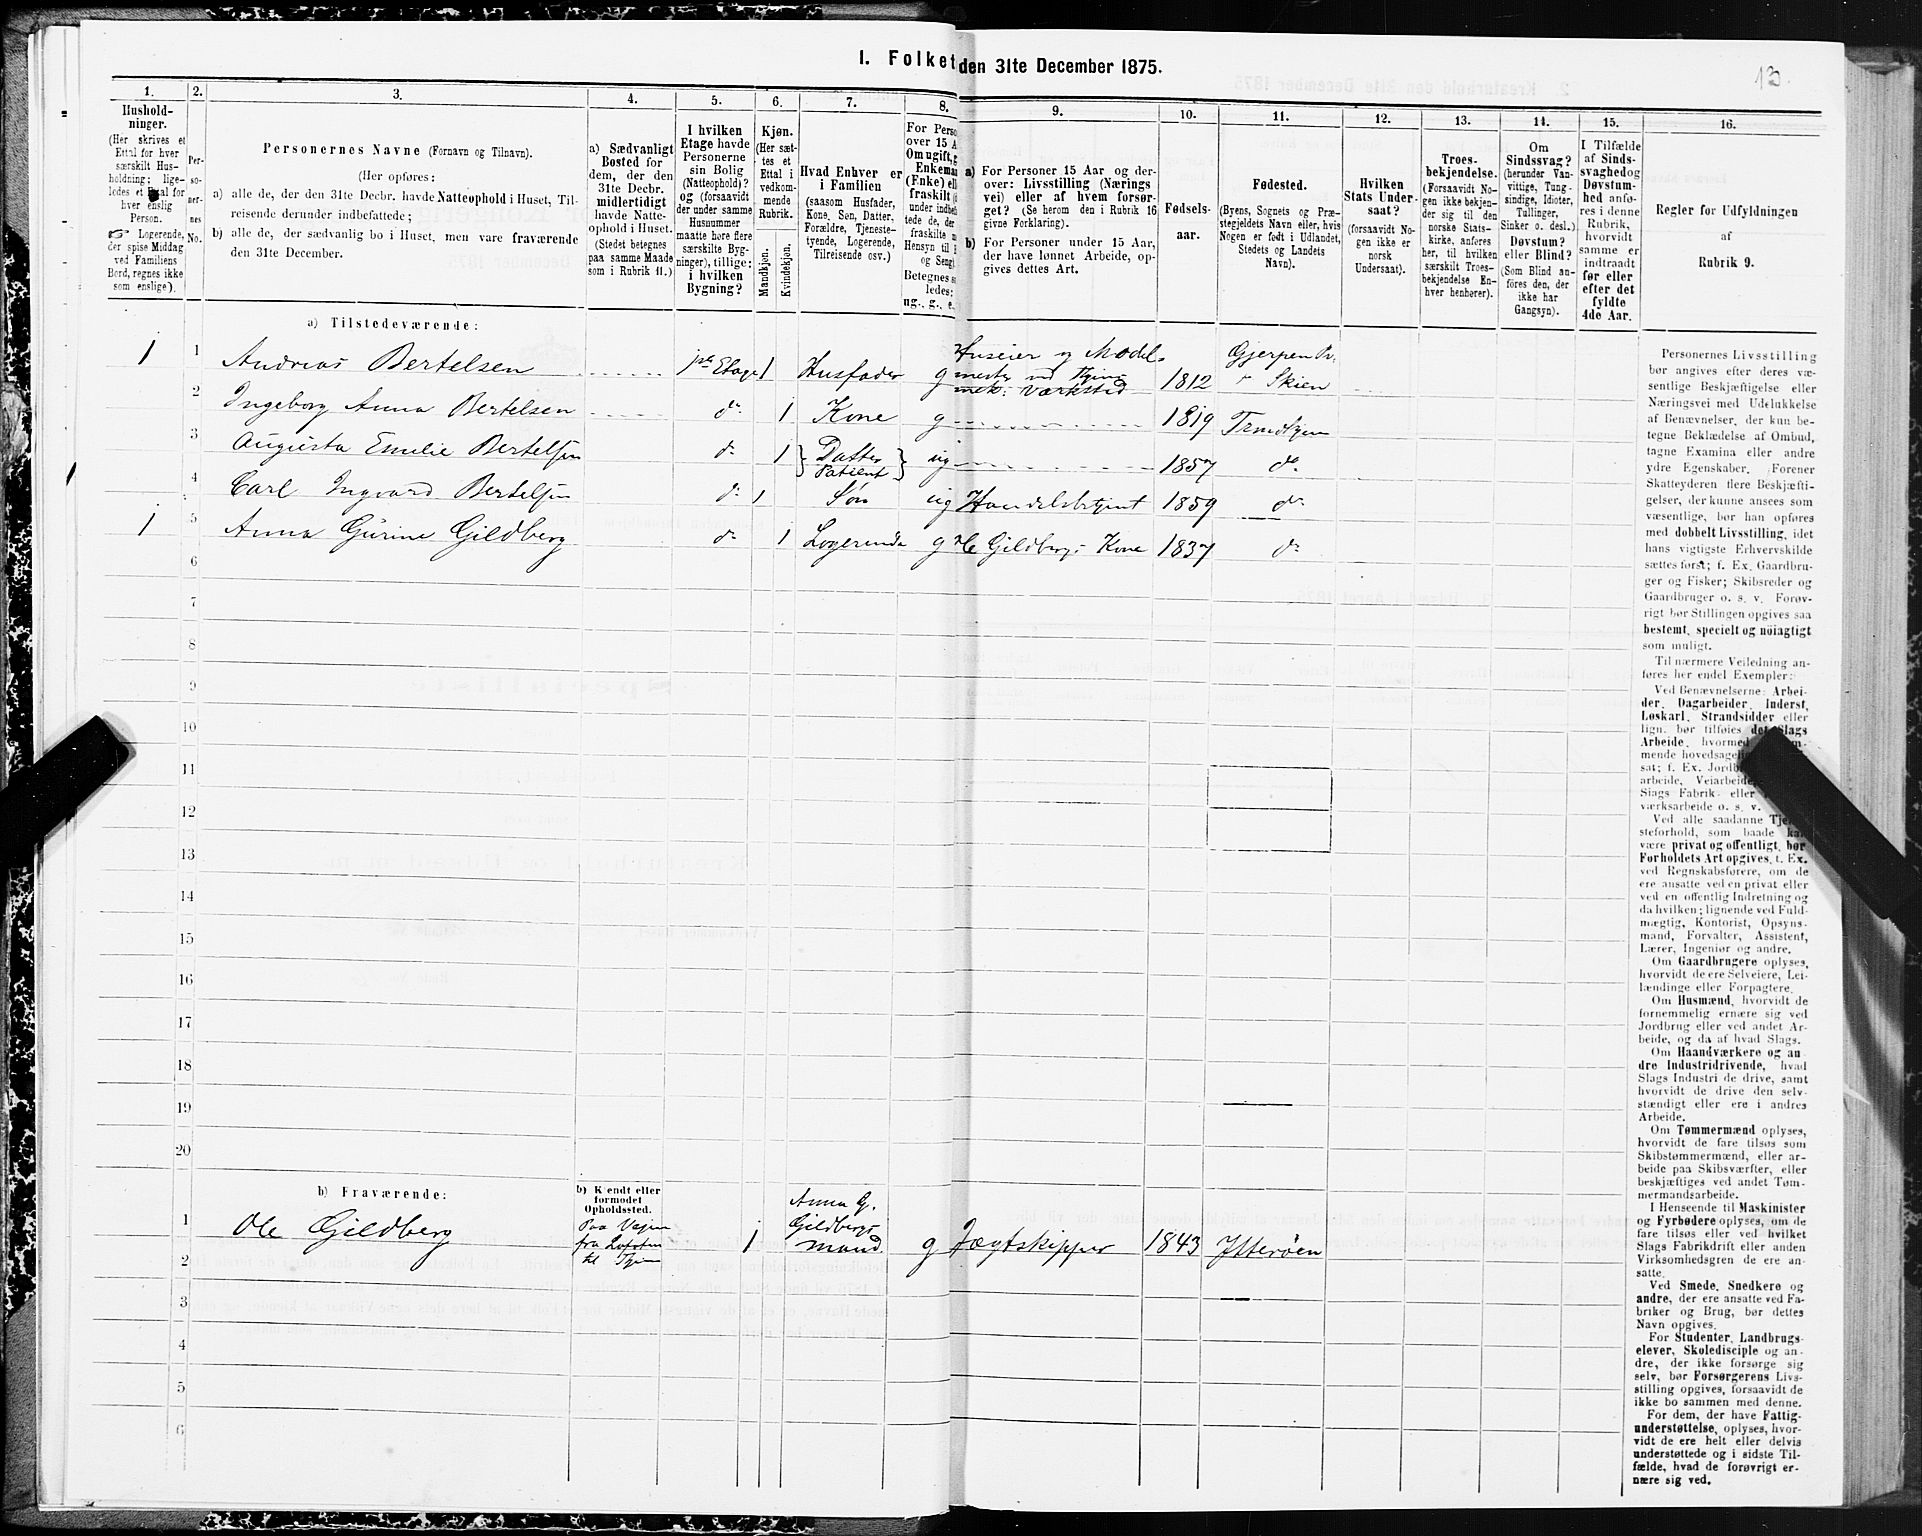 I. Folket den 31te December 1875.
13.
1.
Hushold-
ninger.
(Her skrives et
Ettal for hver
særskilt Hus-
holdning; lige-
ledes et Ettal for
hver enslig
Person.
☞ Logerende,
der spise Middag
ved Familiens
Bord, regnes ikke
som enslige).
2.
Per-
so-
ner-
nes
No.
3.
Personernes Navne (Fornavn og Tilnavn).
(Her opføres:
a) alle de, der den 31te Decbr. havde Natteophold i Huset, Til-
reisende derunder indbefattede;
b) alle de, der sædvanlig bo i Huset, men vare fraværende
den 31te December.
4.
a) Sædvanligt
Bosted for
dem, der den
31te Decbr.
midlertidigt
havde Natte-
ophold i Huset.
(Stedet betegnes
paa samme Maade
som i Rubrik 11.)
5.
I hvilken
Etage havde
Personerne
sin Bolig
(Natteophold)?
og (forsaavidt
der under samme
Husnummer
maatte høre flere
særskilte Byg-
ninger), tillige:
i hvilken
Bygning?
6.
Kjøn.
(Her sæt-
tes et
Ettal i
vedkom-
mende
Rubrik.
Mandkjøn.
Kvindekjøn.
7.
Hvad Enhver er
i Familien
(saasom Husfader,
Kone, Søn, Datter,
Forældre, Tjeneste-
tyende, Logerende,
Tilreisende osv.)
8.
For Perso
over 15 A
Om ugift, g
Enkeman
(Enke) ell
fraskilt
under indbef
tede de, der
fraskilte
Hensyn til
og Seng
Betegnes s
ledes:
ug., g., e.
9.
a) For Personer 15 Aar og der-
over: Livsstilling (Nærings
vei) eller af hvem forsør-
get? (Se herom den i Rubrik 16
givne Forklaring).
b) For Personer under 15 Aar,
der have lønnet Arbeide, op-
gives dettes Art.
10.
Fødsels-
aar.
11.
Fødested.
(Byens, Sognets og Præ-
stegjeldets Navn eller, hvis
Nogen er født i Udlandet,
Stedets og Landets
Navn).
12.
Hvilken
Stats Under-
saat?
(forsaavidt No-
gen ikke er
norsk
Undersaat).
13.
Troes-
bekjendelse.
(Forsaavidt No-
gen ikke bekjen-
der sig til den
norske Stats-
kirke, anføres
her, til hvilken
særskilt Troes-
bekjendelse En-
hver henhører).
14.
Om
Sindssvag?
(herunder Van-
vittige, Tung-
sindige, Idioter,
Tullinger,
Sinker o. desl.)
Døvstum?
eller Blind?
(Som Blind an-
føres den, der
ikke har
Gangsyn).
15.
I Tilfælde
af Sinds-
svaghed og
Døvstum-
hed anfø-
res i denne
Rubrik,
hvorvidt
samme er
indtraadt
før eller
efter det
fyldte
4de Aar.
16.
Regler for Udfyldningen
af
Rubrik 9.
a) Tilstedeværende:
1 1 Andreas Bertelsen 1ste Etage 1 Husfader g Huseier og Model-
mester ved
mek: Værksted 1812 Gjerpen Pr.
v Skien
2 Ingeborg Anna Bertelsen do 1 Kone g 1819 Trondhjem
3 Augusta Emilie Bertelsen do 1 Datter
Patient ug 1857 do
4 Carl Ingvard Bertelsen do 1 Søn ug Handelsbetjent 1859 do
1 5 Anna Gurine Gildberg do 1 Logerende g Ole Gildbergs Kone 1837 do
6
7
8
9
10
11
12
13
14
15
16
17
18
19
20
b) Fraværende:
b) Kjendt eller
formodet
Opholdssted.
1 Ole Gildberg Paa Veien
fra Lofoten
til 1 Anna G.
Gildbergs
mand g Jægtskipper 1843 Ytterøen
2
3
4
5
6
Personernes Livsstilling
bør angives efter deres væ-
sentlige Beskjæftigelse eller
Næringsvei med Udelukkelse
af Benævnelser, der kun be-
tegne Beklædelse af Ombud,
tagne Examina eller andre
ydre Egenskaber. Forener
Skatteyderen flere Beskjæfti-
gelser, der kunne ansees som
væsentlige, bør han opføres
med dobbelt Livsstilling, idet
hans vigtigste Erhvervskilde
sættes først; f. Ex. Gaardbru-
ger og Fisker; Skibsreder og
Gaardbruger o. s. v. Forøv-
rigt bør Stillingen opgives saa
bestemt, specielt og nøiagtigt
som muligt.
Til nærmere Veiledning an-
føres her endel Exempler:
Ved Benævnelserne: Arbei-
der, Dagarbeider, Inderst,
Løskarl, Strandsidder eller
lign. bør tilføies det Slags
Arbeide, hvormed
mende hovedsagelig
sat; f. Ex. Jordb
arbeide, Veiarbeide,
Slags Fabrik- eller
værksarbeide o. s. v.
Ved alle saadanne Tjene-
steforhold, som baade kan
være privat og offentligt, bør
Forholdets Art opgives, f. Ex.
ved Regnskabsførere, om de
ere ansatte ved en privat eller
ved en offentlig Indretning og
da hvilken; lignende ved Fuld-
mægtig, Kontorist, Opsyns-
mand, Forvalter, Assistent,
Lærer, Ingeniør og andre.
Om Gaardbrugere oplyses,
hvorvidt de ere Selveiere, Lei-
lændinge eller Forpagtere.
Om Husmænd, hvorvidt de
fornemmelig ernære sig ved
Jordbrug eller ved andet Ar-
beide, og da af hvad Slags.
Om Haandværkere og an-
dre Industridrivende, hvad
Slags Industri de drive, samt
hvorvidt de drive den selv-
stændigt eller ere i andres
Arbeide.
Om Tømmermænd oplyses,
hvorvidt de fare tilsøs som
Skibstømmermænd, eller ar-
beide paa Skibsværfter, eller
beskjæftiges ved andet Tøm-
mermandsarbeide.
I Henseende til Maskinister
og Fyrbødere oplyses, om de
fare tilsøs eller ved hvilket
Slags Fabrikdrift eller anden
Virksomhedsgren de ere an-
satte.
Ved Smede, Snedkere og
andre, der ere ansatte ved Fa-
briker og Brug, bør dettes
Navn opgives.
For Studenter, Landbrugs-
elever, Skoledisciple og an-
dre, der ikke forsørge sig
selv, bør Forsørgerens Livs-
stilling opgives, forsaavidt de
ikke bo sammen med denne.
For dem, der have Fattig-
understøttelse, oplyses, hvor-
vidt de ere helt eller delvis
understøttede og i sidste Til-
fælde, hvad de forøvrigt er-
nære sig ved.